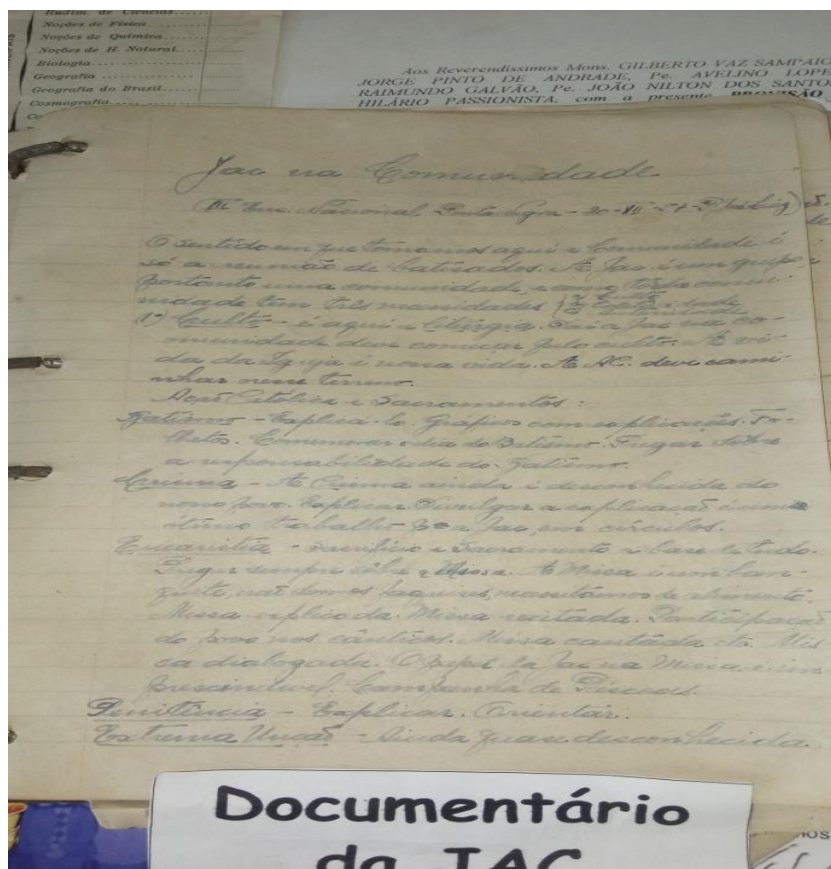 Rudim. de Ciências
Noções de Física
Noções de Química
Noções de H. Natural
Biologia
Geografia
Geografia do Brasil
Cosmografia
Aos Reverendíssimos Mons. GILBERTO VAZ SAMPAIO
JORGE PINTO DE ANDRADE, Pe. AVELINO LOPE
RAIMUNDO GALVÃO, Pe. JOÃO NILTON DOS SANTO
HILÁRIO PASSIONISTA, com a presente PROVISÃO
Jac na Comunidade
Nacional Ponta Negra - 20 -
O sentido em que tomamos aqui a Comunidade é
só a reunião de batizados. A Jac é um grupo,
portanto uma comunidade, e como toda comu-
nidade tem três
1º) Culto - é aqui a liturgia. Jac na co-
munidade deve começar pelo culto. A vi-
da da Igreja é nossa vida. A AC. deve cami-
nhar nesse terreno.
Ação Católica e Sacramentos:
Batismo - Explica-lo. Gráficos com explicações. Fo-
lhetos. Comemorar o dia do Batismo. sobre
a responsabilidade do Batismo.
Crisma - A Crisma ainda é desconhecida do
nosso povo. Explicar. Divulgar a explicação é um
ótimo trabalho para a Jac, em círculos.
Eucaristia - Sacrifício e Sacramento a base de tudo.
sempre sôbre a Missa. A Missa é um ban-
quete, não somos faquires, necessitamos de alimento.
Missa explicada. Missa recitada. Participação
do povo nos cânticos. Missa cantada etc. Mis
sa dialogada. O papel da Jac na Missa é im
prescindivel. Campanha de
Penitência - Explicar. Orientar.
Extrema Unção - Ainda quase desconhecida.
Documentário
da JAC